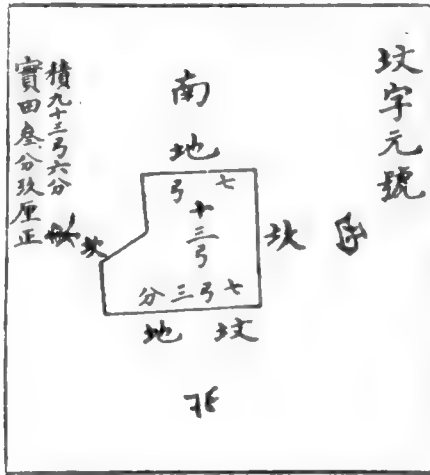 坟字元號
南
地
七弓
十三弓
七弓三分
坟地
北
積九十三弓六分
實田叁分玖厘正